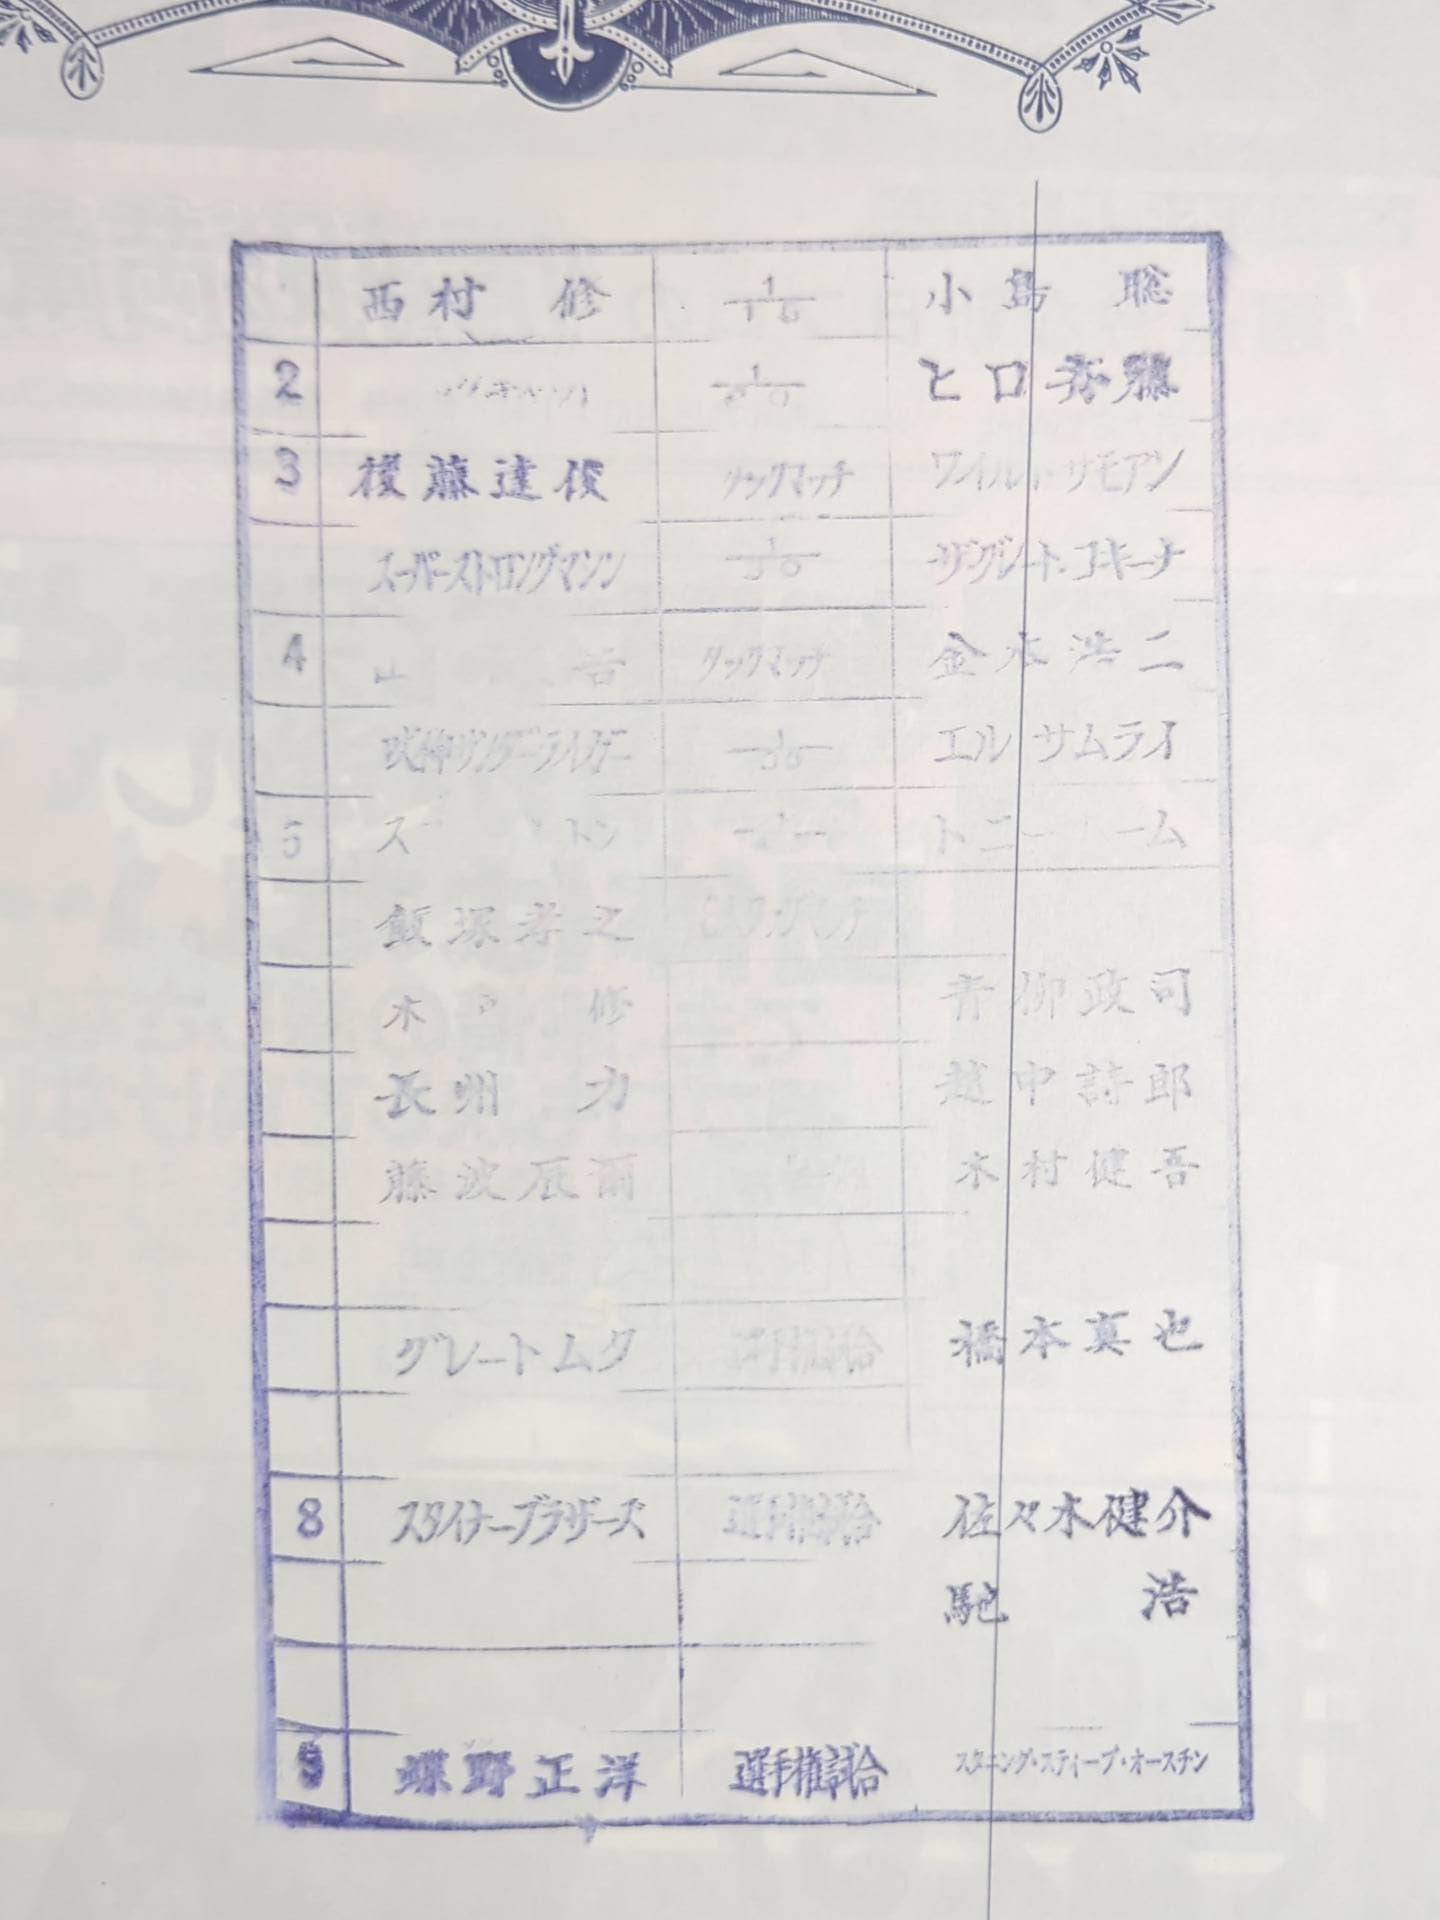 西村 修 1/15 小島 聡
2 1/20 ヒロ斉藤
3 後藤達俊 タッグマッチ ワイルド・サモアン
スーパーストロングマシン 1/30 ザ・グレート・コキーナ
4 山 タッグマッチ 金本浩二
獣神サンダーライガー 1/30 エル サムライ
5
飯塚孝之
木戸 修 青柳政司
長州 力 越中詩郎
藤波辰爾 木村健吾
グレートムタ 選手権試合 橋本真也
8 スタイナーブラザーズ 選手権試合 佐々木健介
馳 浩
9 蝶野正洋 選手権試合 スタニング・スティーブ・オースチン